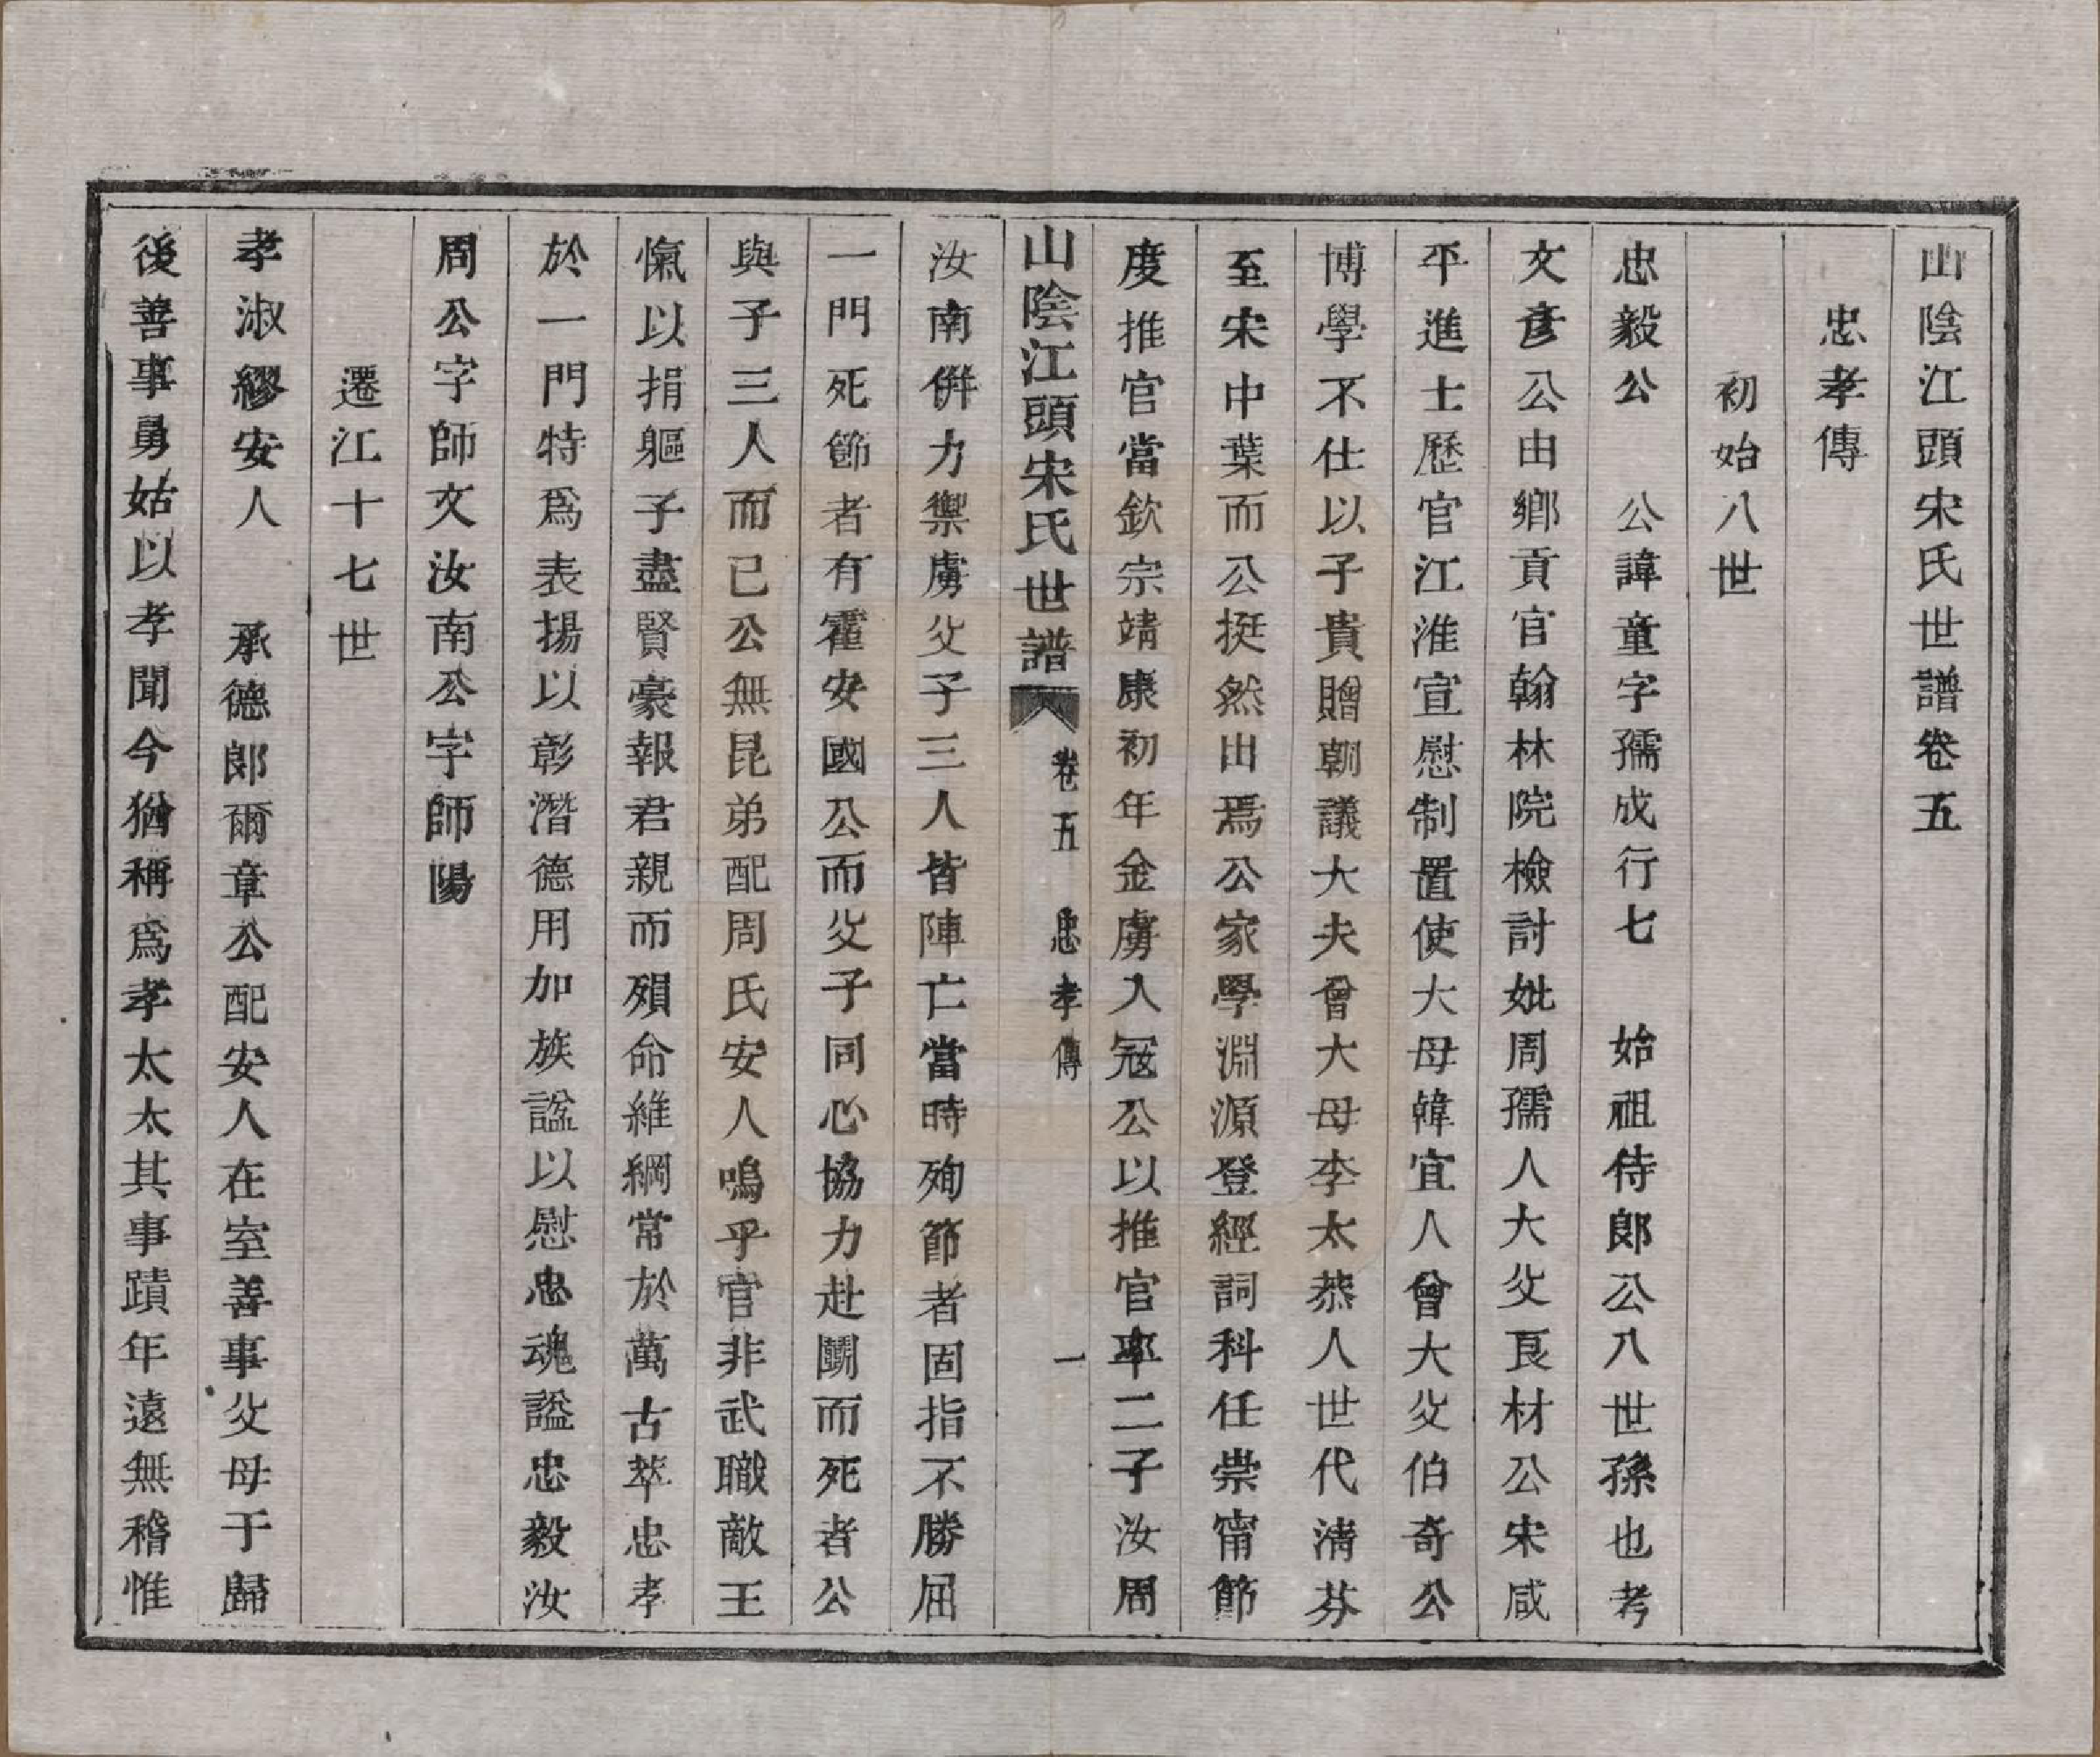 山陰江頭宋氏世譜卷五
忠孝傳
初始八世
忠毅公　公諱童字孺成行七　始祖侍郎公八世孫也考
文彥公由鄉貢官翰林院檢討妣周孺人大父良材公宋咸
平進士歷官江淮宣慰制置使大母韓宜人曾大父伯奇公
博學不仕以子貴贈朝議大夫曾大母李太恭人世代清芬
至宋中葉而公挺然出焉公家學淵源登經詞科任崇甯節
度推官當欽宗靖康初年金虜入寇公以推官率二子汝周
山陰江頭宋氏世譜　卷五　忠孝傳　一
汝南併力禦虜父子三人皆陣亡當時殉節者固指不勝屈
一門死節者有霍安國公而父子同心協力赴鬭而死者公
與子三人而已公無昆弟配周氏安人嗚乎官非武職敵王
愾以捐軀子盡賢豪報君親而殞命維綱常於萬古萃忠孝
於一門特爲表揚以彰潛德用加族謚以慰忠魂謚忠毅汝
周公字師文汝南公字師陽
遷江十七世
孝淑繆安人　承德郎爾章公配安人在室善事父母于歸
後善事舅姑以孝聞今猶稱爲孝太太其事蹟年遠無稽惟